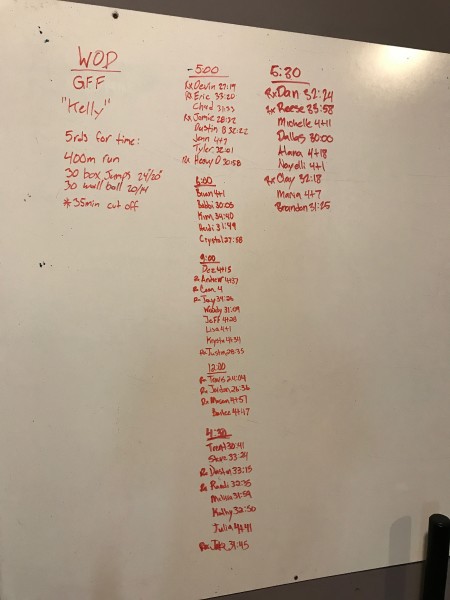 WOD
GFF
"Kelly"
5rds for time:
400m run
30 box jumps 24/20"
30 wall ball 20/14
*35min cut off
5:00
Rx Devin 27:19
Rx Eric 33:20
Chad 31:33
Rx Jamie 28:32
Dustin B 32:22
Jenn 4+7
Tyler 32:01
Rx Heavy D 30:58
4+1
Bobbi 30:08
Kim 34:40
Heidi 31:49
Crystal 27:58
9:00
Dez 4+15
Rx Andrew 4+37
Rx Cam 4
Rx Jay 34:26
Waddy 31:09
Jeff 4+28
Lisa 4+1
Krysta 4+34
Rx Justin 28:35
12:00
Rx Travis 24:04
Rx Jordan 26:36
Rx Mason 4+57
4+47
4:30
Trent 30:41
Steve 33:24
Rx Dustin 33:15
Rx Randi 32:35
Melissa 31:59
Kathy 32:50
Julia 4+41
Rx Jake 31:45
5:30
Rx Dan 32:24
Rx Reese 35:58
Michelle 4+11
Dallas 30:00
Alana 4+18
Nayelli 4+1
Rx Clay 32:18
Maria 4+7
Brandon 31:25